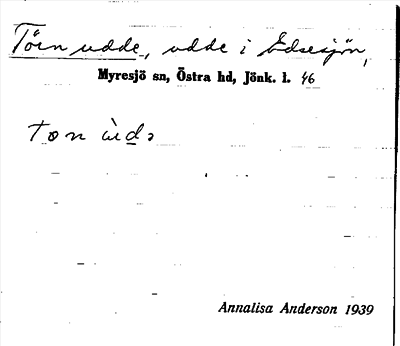 Törn udde, udde i Edsesjön,
Myresjö sn, Östra hd, Jönk. l. 46
Annalisa Anderson 1939